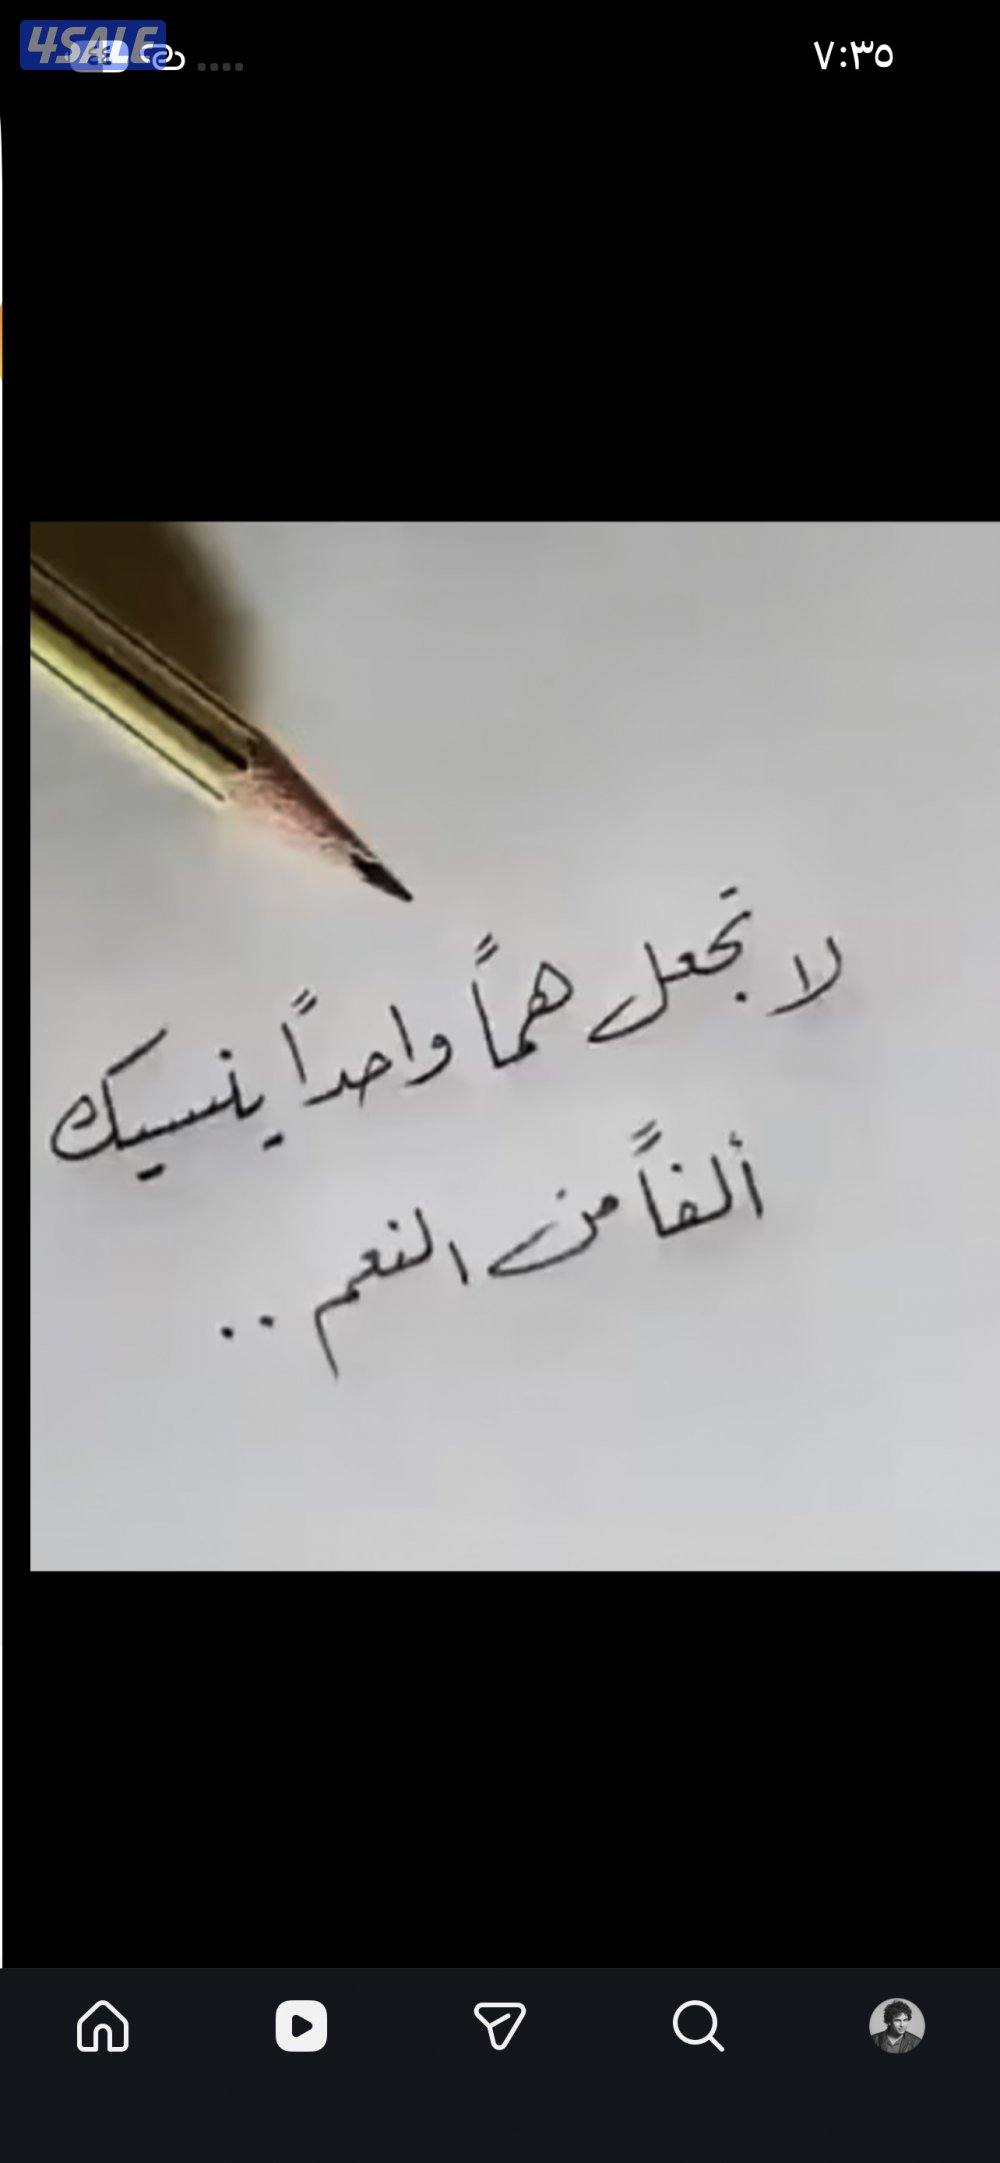 4SALE
٧:٣٥
لا تجعل هماً واحداً ينسيك
ألفاً من النعم ..